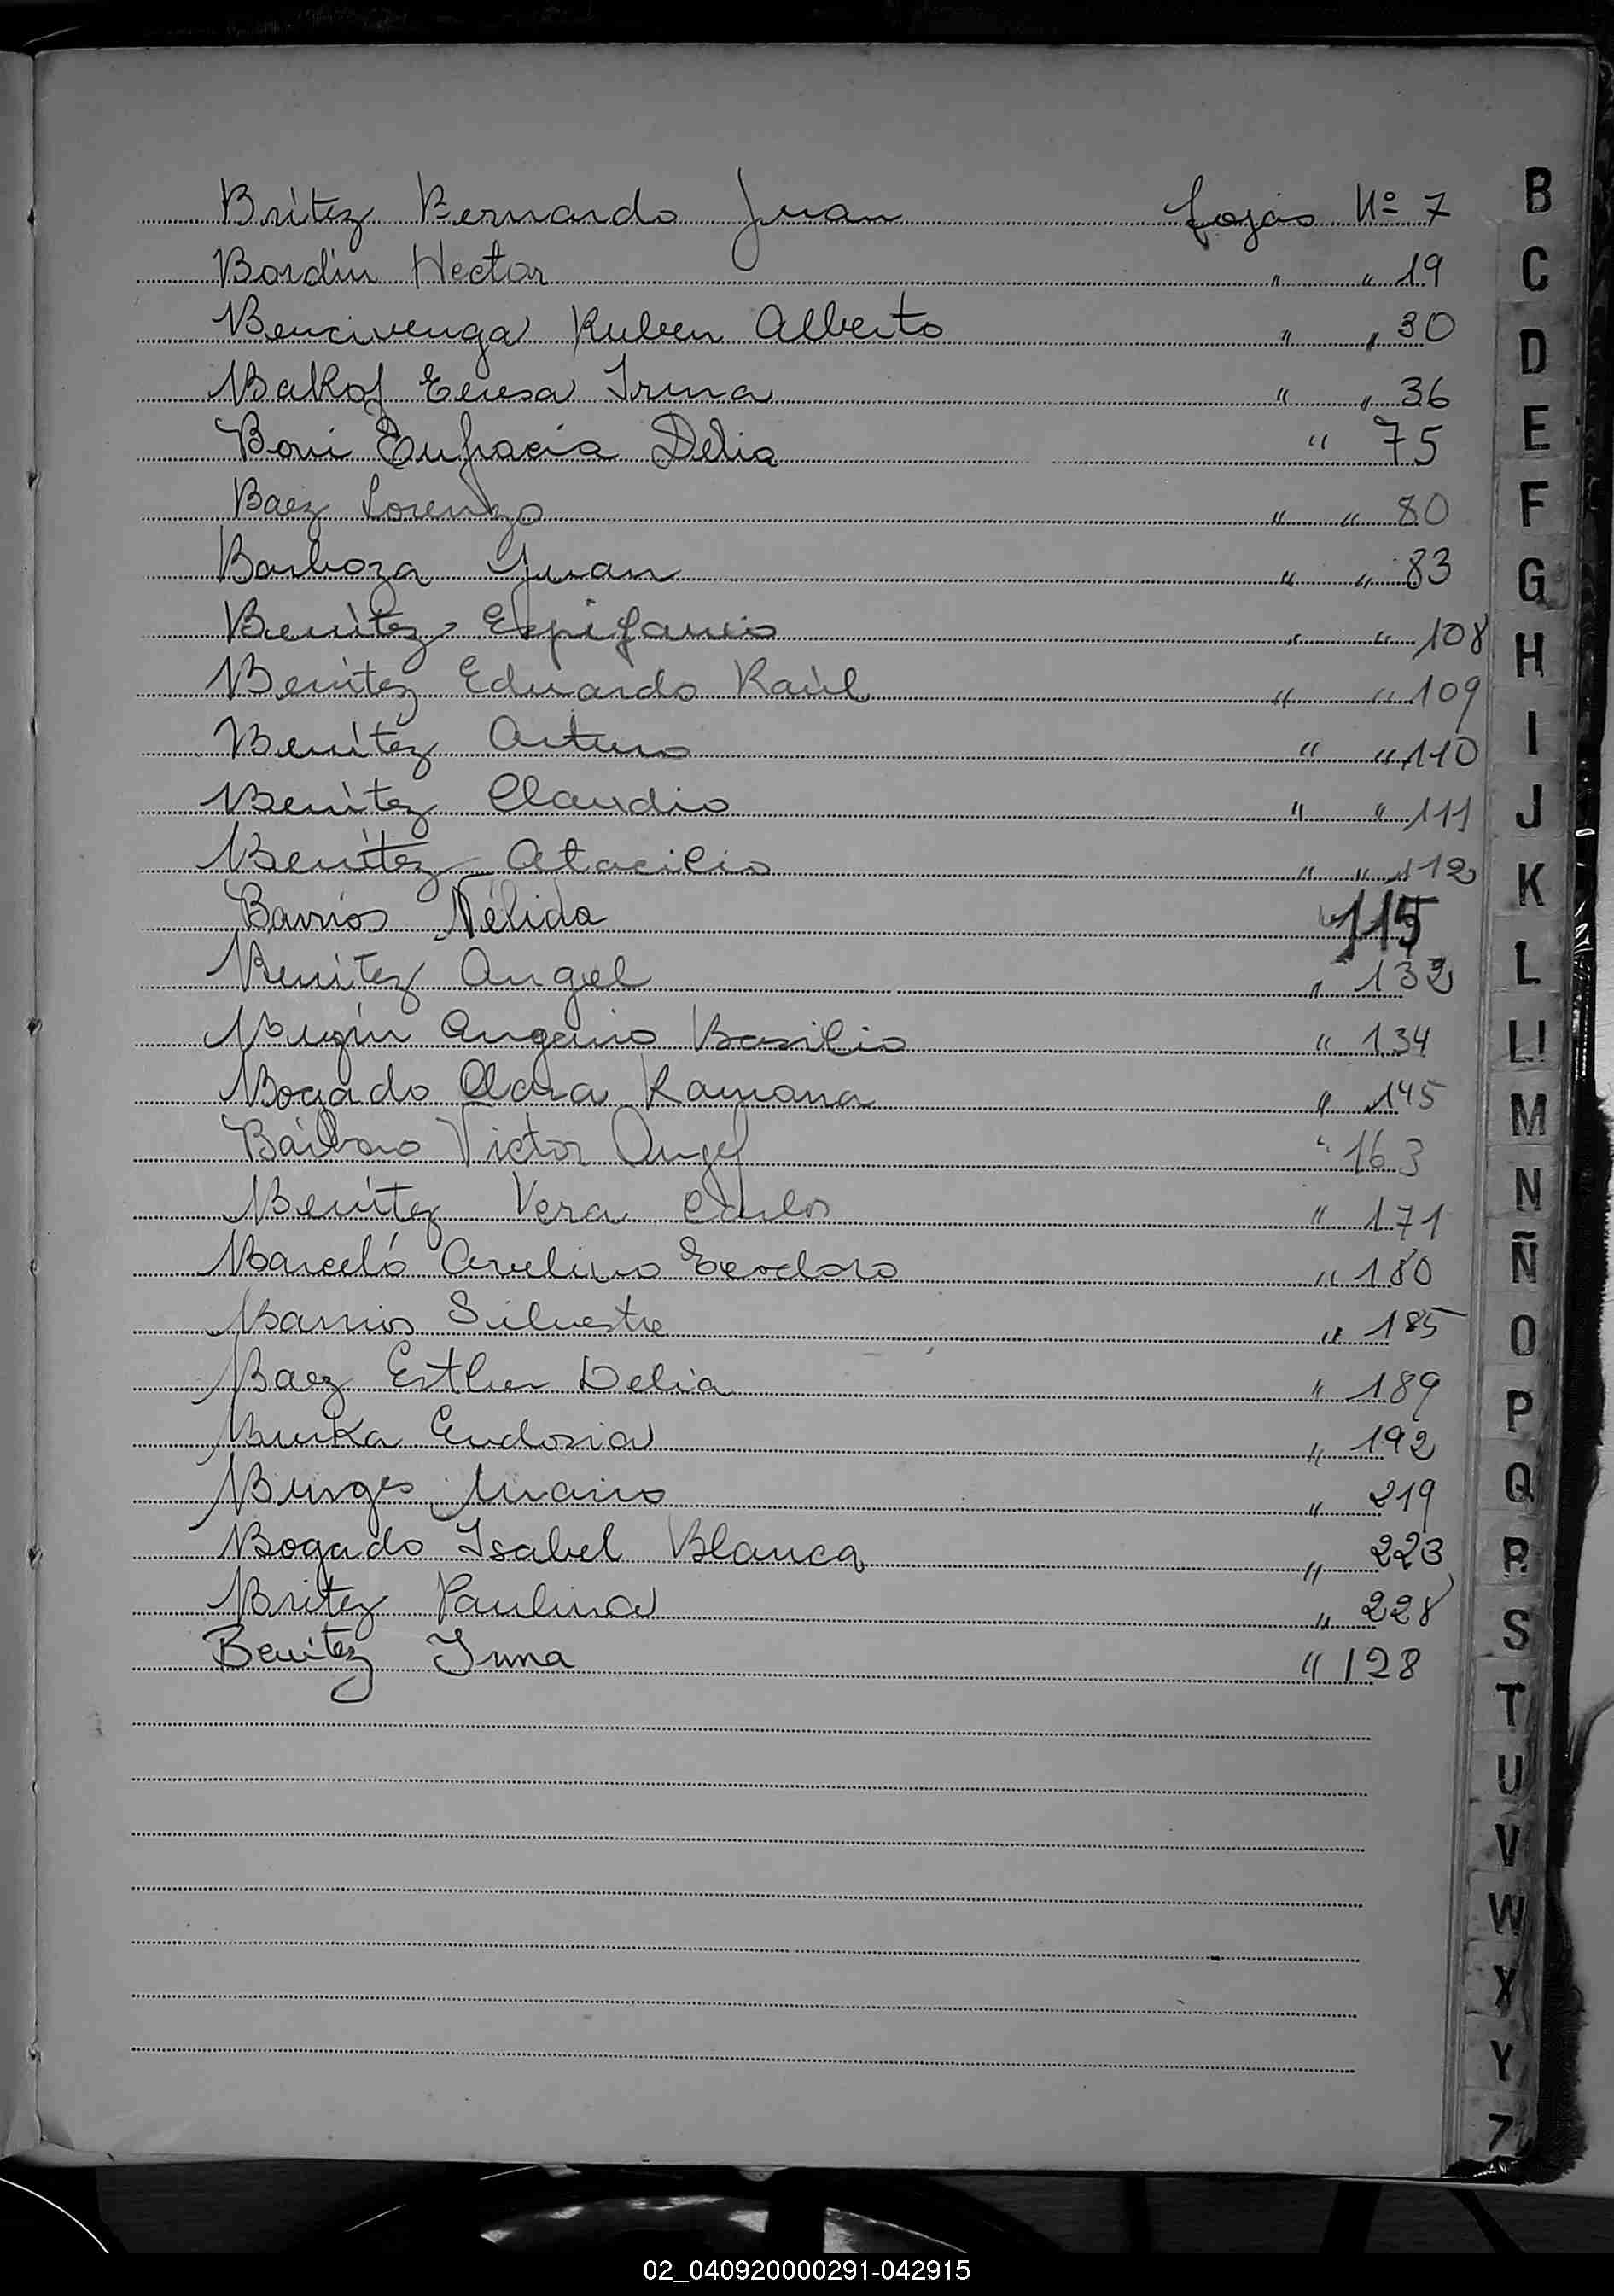 Britez Bernardo Juan fojas Nº 7
Bordin Hector " " 19
Bencivenga Ruben Alberto " " 30
Bakof Teresa Irma " " 36
Boni Eufracia Delia " 75
Baez Lorenzo " " 80
Barboza Juan " " 83
Benítez Epifanio " " 108
Benítez Eduardo Raúl " " 109
Benítez Arturo " " 110
Benítez Claudio " " 111
Benítez Atacilio " " 112
Barrios Nélida " 115
Benitez Angel " 132
Basilio " 134
Bogado Clara Ramona " 145
Bárbaro Victor Angel " 163
Benítez Vera Carlos " 171
Barceló Avelino Teodoro " 180
Barrios Silvestre " 185
Baez Esther Delia " 189
Burka Eudosia " 192
Burges Mario " 219
Bogado Isabel Blanca " 223
Britez Paulina " 228
Benitez Irma " 128
B
C
D
E
F
G
H
I
J
K
L
Ll
M
N
Ñ
O
P
Q
R
S
T
U
V
W
X
Y
Z
02_040920000291-042915